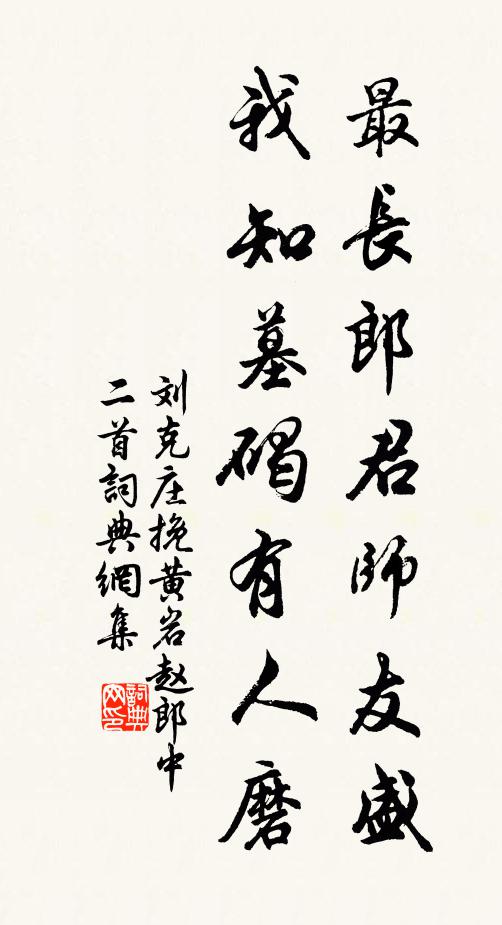 最長郎君師友盛
我知墓碣有人磨
刘克庄挽黄岩赵郎中
二首詞典網集
詞典
网印